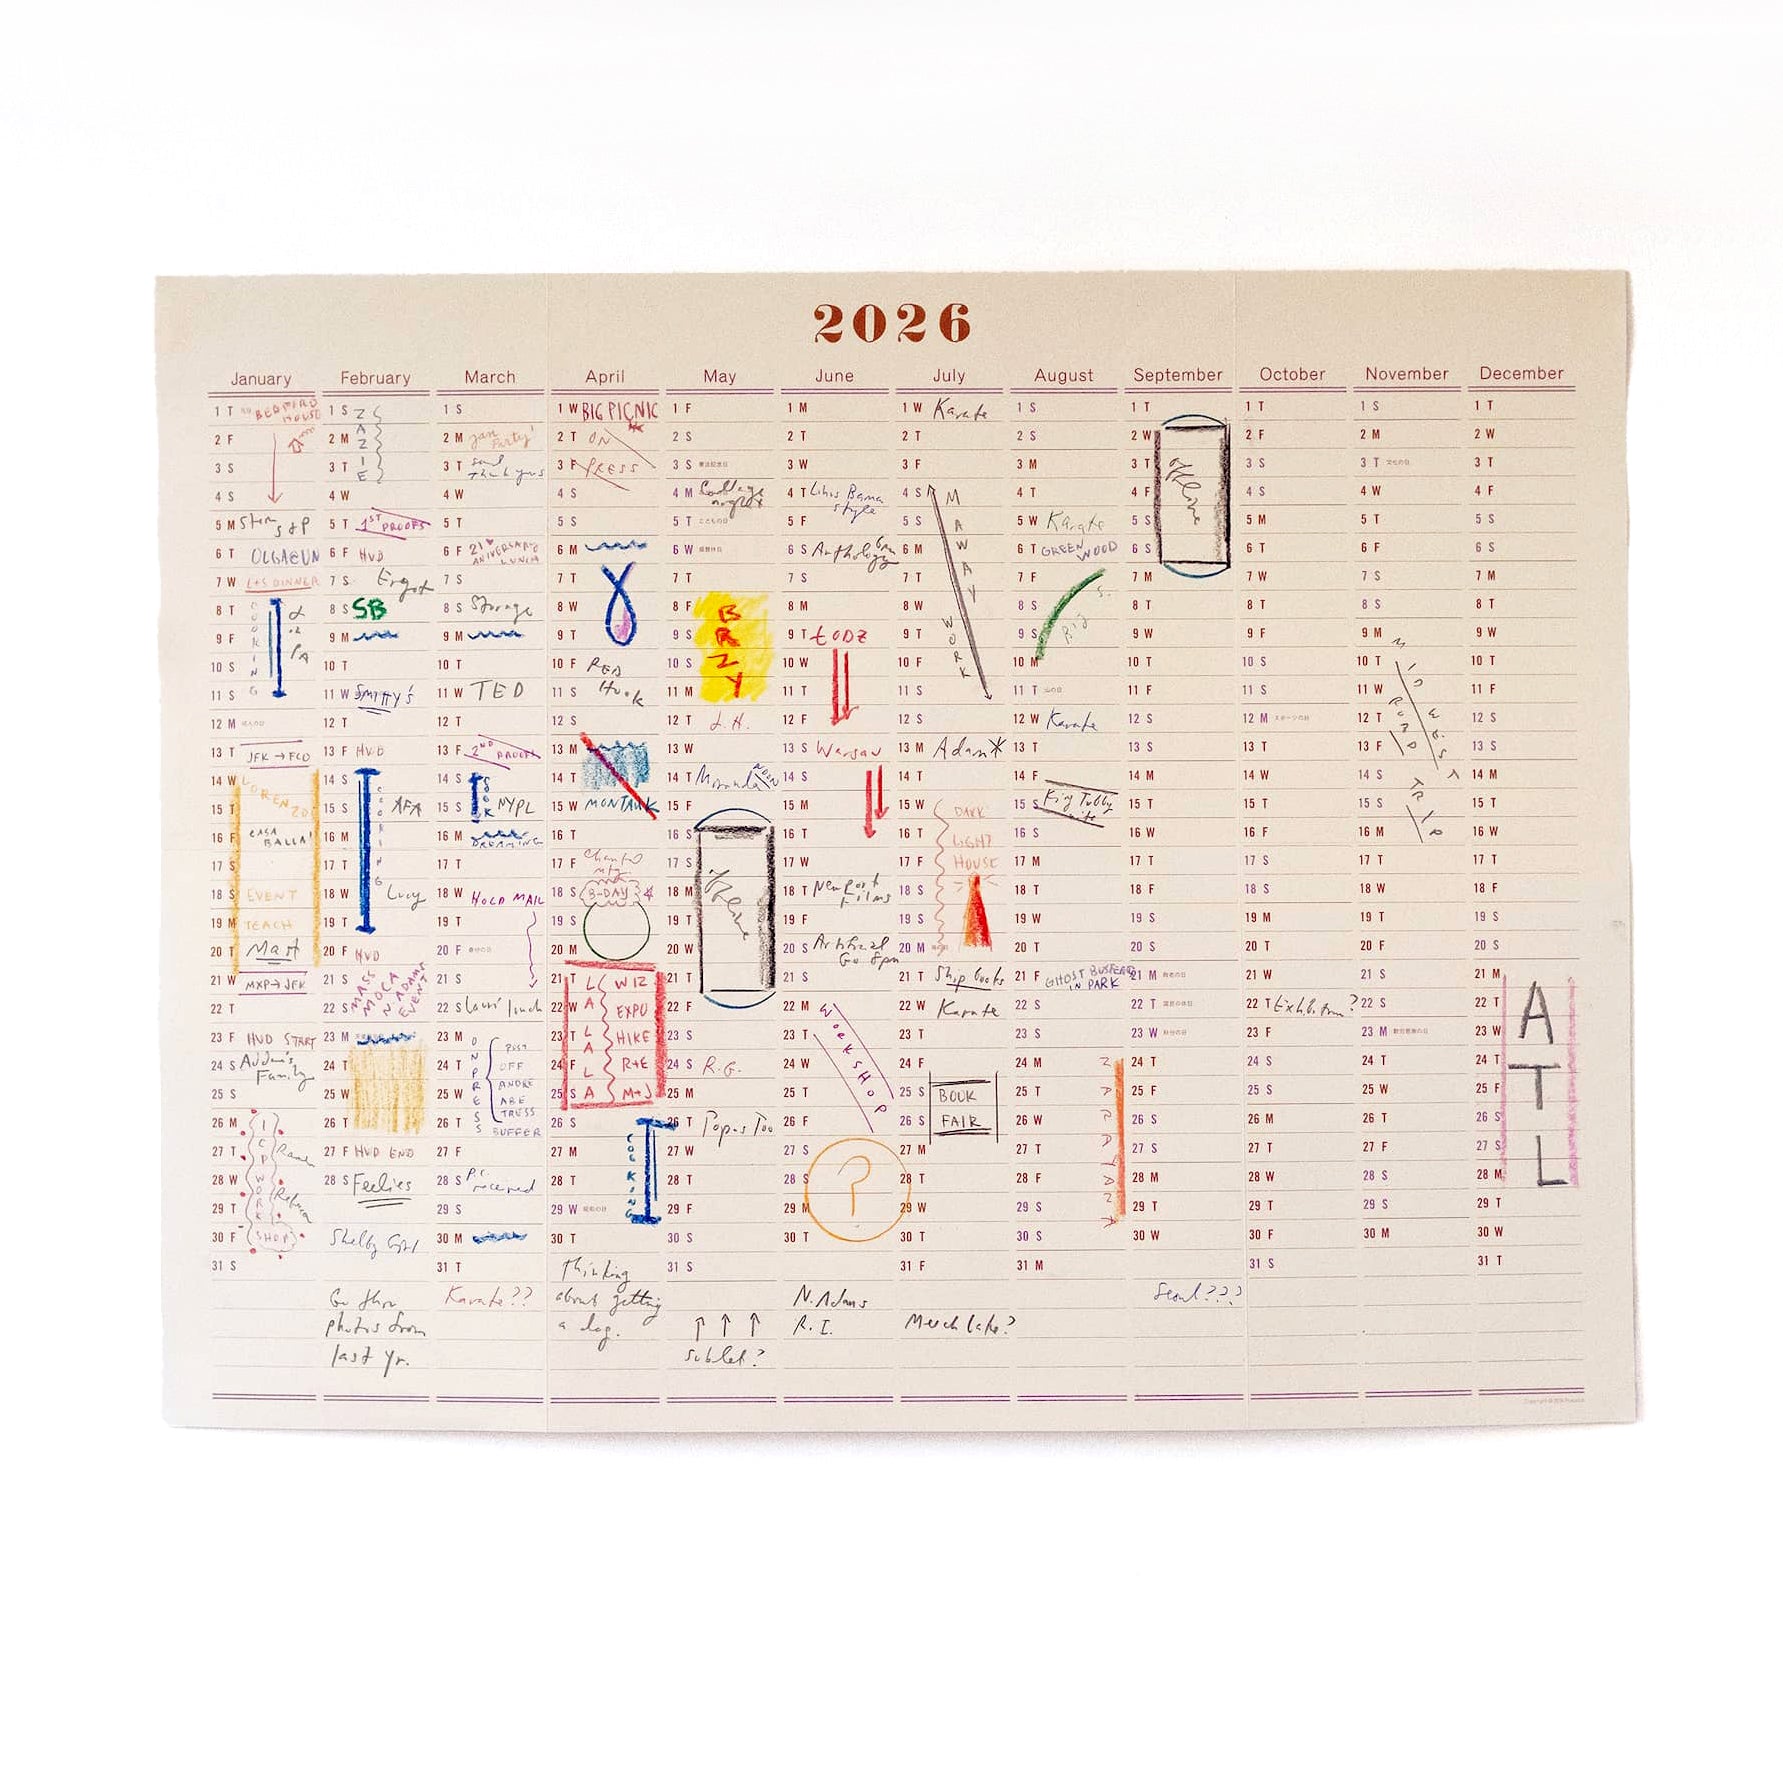 2026
January
1 T BEDFORD HOUSE
2 F
3 S
4 S
5 M
6 T OLGA@UN
7 W L+S DINNER
8 T
9 F
10 S
11 S
COOKING
12 M 成人の日
13 T JFK→FCO
14 W LORENZO
15 T
16 F CASA BALLA!
17 S
18 S EVENT
19 M TEACH
20 T Mast
21 W MXP→JFK
22 T
23 F HVD START
24 S Addam's Family
25 S
26 M
27 T
28 W
29 T
30 F
ICP WORKSHOP
31 S
February
1 S
2 M
3 T
4 W
5 T 1ST PROOFS
6 F HVD
7 S Ergot
8 S SB
9 M
10 T
11 W SMITTY'S
12 T
13 F HVD
14 S
15 S AFA
16 M
17 T
18 W Lucy
19 T
20 F HVD
21 S
22 S
MASS MOCA N ADAMS EVENT
23 M
24 T
25 W
26 T
27 F HVD END
28 S Feelies
Go thru
photos from
last yr.
March
1 S
2 M Jan Party!
3 T send thank yous
4 W
5 T
6 F 21 ANIVERSARY LUNCH
7 S
8 S Storage
9 M
10 T
11 W TED
12 T
13 F 2ND PROOFS
14 S
15 S NYPL
16 M DREAMING
17 T
18 W HOLD MAIL
19 T
20 F 春分の日
21 S
22 S lunch
23 M
24 T
25 W
26 T
ON PRESS
BUFFER
27 F
28 S received
29 S
30 M
31 T
Karate??
April
1 W BIG PICNIC
2 T ON
3 F PRESS
4 S
5 S
6 M
7 T
8 W
9 T
10 F RED
11 S Hook
12 S
13 M
14 T
15 W MONTAUK
16 T
17 F
18 S B-DAY
19 S
20 M
21 T WIZ
22 W EXPO
23 T HIKE
24 F R+E
25 S M+J
WALLA LALA
26 S
27 M
28 T
29 W 昭和の日
30 T
COOKING
Thinking
about getting
a dog.
May
1 F
2 S
3 S 憲法記念日
4 M
5 T こどもの日
6 W 振替休日
7 T
8 F
9 S
10 S
11 M
BRZY
12 T L.H.
13 W
14 T NOON
15 F
16 S
17 S
18 M
19 T
20 W
21 T
22 F
23 S
24 S R.G.
25 M
26 T Topos Too
27 W
28 T
29 F
30 S
31 S
↑ ↑ ↑
sublet?
June
1 M
2 T
3 W
4 T style
5 F
6 S Anthology
7 S
8 M
9 T ŁODZ
10 W
11 T
12 F
13 S Warsaw
14 S
15 M
16 T
17 W
18 T Newport Films
19 F
20 S Artificial Go 8pm
21 S
22 M
23 T
24 W
25 T
26 F
WORKSHOP
27 S
28 S
29 M
?
30 T
N. Adams
R.I.
July
1 W Karate
2 T
3 F
4 S
5 S
6 M
7 T
8 W
9 T
10 F
11 S
MAWAY WORK
12 S
13 M Adam
14 T
15 W DARK
16 T LIGHT
17 F HOUSE
18 S
19 S
20 M 海の日
21 T Ship books
22 W Karate
23 T
24 F
25 S BOOK
26 S FAIR
27 M
28 T
29 W
30 T
31 F
August
1 S
2 S
3 M
4 T
5 W Karate
6 T GREEN WOOD
7 F
8 S
9 S
10 M
11 T 山の日
12 W Karate
13 T
14 F
15 S King Tubby
16 S
17 M
18 T
19 W
20 T
21 F GHOST BUSTERS IN PARK
22 S
23 S
24 M
25 T
26 W
27 T
28 F
29 S
30 S
31 M
September
1 T
2 W
3 T
4 F
5 S
6 S
7 M
8 T
9 W
10 T
11 F
12 S
13 S
14 M
15 T
16 W
17 T
18 F
19 S
20 S
21 M 敬老の日
22 T 国民の休日
23 W 秋分の日
24 T
25 F
26 S
27 S
28 M
29 T
30 W
Seoul???
October
1 T
2 F
3 S
4 S
5 M
6 T
7 W
8 T
9 F
10 S
11 S
12 M スポーツの日
13 T
14 W
15 T
16 F
17 S
18 S
19 M
20 T
21 W
22 T Exhibition?
23 F
24 S
25 S
26 M
27 T
28 W
29 T
30 F
31 S
November
1 S
2 M
3 T 文化の日
4 W
5 T
6 F
7 S
8 S
9 M
10 T
11 W
12 T
13 F
14 S
15 S
16 M
MIDWEST ROAD TRIP
17 T
18 W
19 T
20 F
21 S
22 S
23 M 勤労感謝の日
24 T
25 W
26 T
27 F
28 S
29 S
30 M
December
1 T
2 W
3 T
4 F
5 S
6 S
7 M
8 T
9 W
10 T
11 F
12 S
13 S
14 M
15 T
16 W
17 T
18 F
19 S
20 S
21 M
22 T
23 W
24 T
25 F
26 S
27 S
28 M
ATL
29 T
30 W
31 T